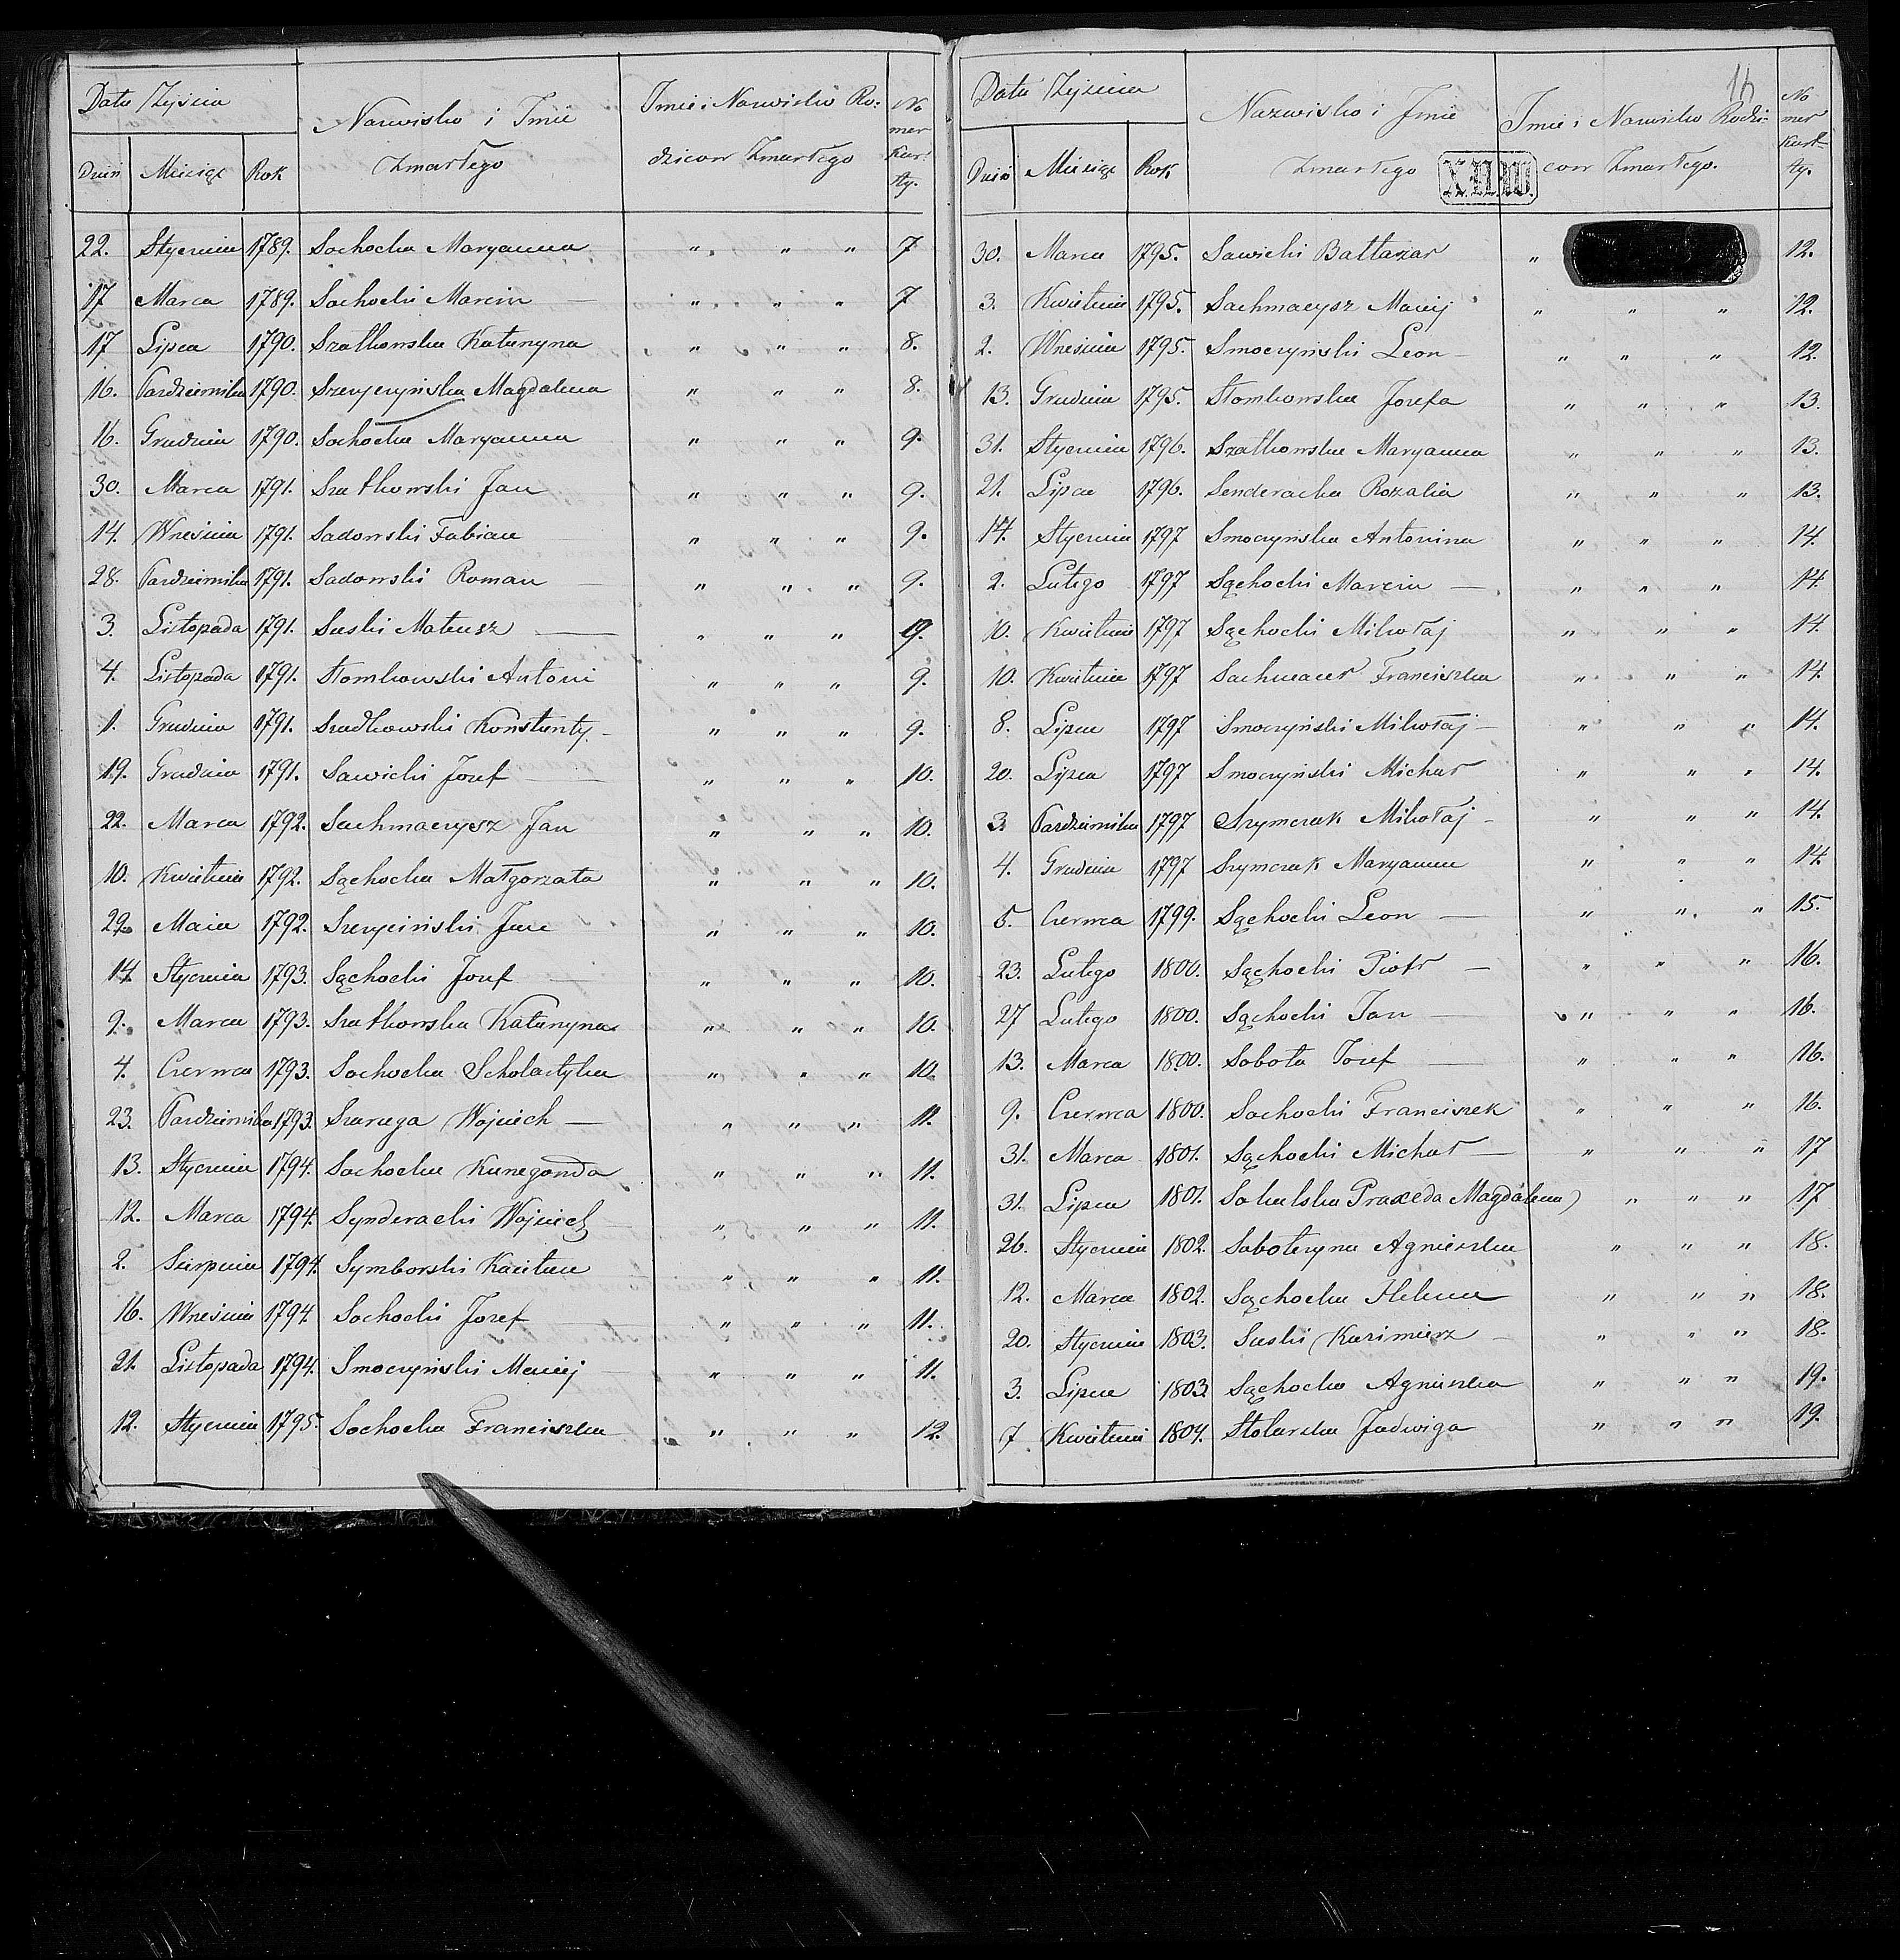 Data Zejścia
Dzień Miesiąc Rok
Nazwisko i Imie
Zmarłego
Imie i Nazwisko Ro-
dziców Zmarłego
No
mer
Kar-
ty.
22. Stycznia 1789. Sochocka Maryanna " " " 7
17 Marca 1789. Sochocki Marcin — " " " 7
17 Lipca 1790. Szatkowska Katarzyna " " " 8.
16. Października 1790. Szczyczyńska Magdalena " " " 8.
16. Grudnia 1790. Sochocka Maryanna " " " 9.
30. Marca 1791. Szatkowski Jan " " " 9.
14. Wreśnia 1791. Sadowski Fabian — " " " 9.
28. Października 1791. Sadowski Roman — " " " 9.
3. Listopada 1791. Suski Mateusz — " " " 9.
4. Listopada 1791. Słomkowski Antoni " " " 9.
1. Grudnia 1791. Szadkowski Konstanty - " " " 9.
19. Grudnia 1791. Sawicki Jozef — " " " 10.
22. Marca 1792. Sachmacysz Jan " " " 10.
10. Kwietnia 1792. Sąchocka Małgorzata " " " 10.
29. Maia 1792. Szczyciński Jan " " " 10.
14 Stycznia 1793. Sąchocki Jozef — " " " 10.
9. Marca 1793. Szatkowska Katarzyna " " " 10.
4. Czerwca 1793. Sochocka Scholastyka " " " 10.
23. Października 1793. Szaruga Wojciech — " " " 11.
13. Stycznia 1794. Sochocka Kunegonda " " " 11.
12. Marca 1794. Synderacki Wojciech " " " 11.
2. Sierpnia 1794. Symborski Kaietan " " " 11.
16. Wreśnia 1794. Sochocki Jozef — " " " 11.
21. Listopada 1794. Smoczyński Maciej " " " 11.
12. Stycznia 1795. Sochocka Franciszka " " " 12.
16
Data Zejścia
Dzień Miesiąc Rok
Nazwisko i Imie
Zmarłego
Imie i Nazwisko Rodzi-
cow Zmarłego.
No
mer
Kart-
ty.
30. Marca 1795. Sawicki Baltazar " 12.
3. Kwietnia 1795. Sachmacysz Maciej " " " 12.
2. Wreśnia 1795. Smoczyński Leon — " " " 12.
13. Grudnia 1795. Słomkowska Jozefa " " " 13.
31. Stycznia 1796. Szatkowska Maryanna " " " 13.
21. Lipca 1796. Senderacka Rozalia " " " 13.
14. Stycznia 1797 Smoczyńska Antonina " " " 14.
2. Lutego 1797 Sąchocki Marcin — " " " 14.
10. Kwietnia 1797 Sąchocki Mikołaj " " " 14.
10. Kwietnia 1797 Franciszka " " " 14.
8. Lipca 1797 Smoczyński Mikołaj — " " " 14.
20. Lipca 1797 Smoczyński Michał " " " 14.
3. Października 1797 Szymczak Mikołaj - " " " 14.
4. Grudnia 1797 Szymczak Maryanna " " " 14.
5. Czerwca 1799. Sąchocki Leon — " " " 15.
23. Lutego 1800. Sąchocki Piotr — " " " 16.
27 Lutego 1800. Sąchocki Jan — " " " 16.
13. Marca 1800. Sobota Jozef — " " " 16.
9. Czerwca 1800. Sochocki Franciszek " " " 16.
31. Marca 1801. Sąchocki Michał — " " " 17
31. Lipca 1801. Sokulska Praxeda Magdalena) " " " 17
26. Stycznia 1802. Soboteryna Agnieszka " " " 18.
12. Marca 1802. Sąchocka Helena " " " 18.
20. Stycznia 1803. Suski Kazimierz — " " " 18.
3. Lipca 1803. Sąchocka Agnieszka " " " 19.
7 Kwietnia 1804. Stolarska Jadwiga " " " 19.